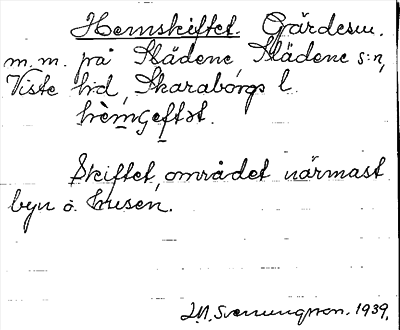 Hemskiftet. Gärdesm.
m.m. på Slädene Slädene s:n,
Viste hd, Skaraborgs l.
hèmʃeftət.
Skiftet, området närmast
byn o. husen.
J.M. Svenungsson. 1939.